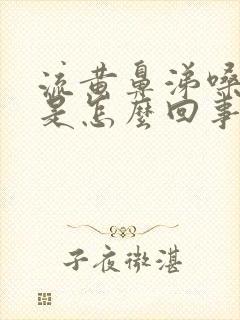 流黄鼻涕嗓
是怎麼回事
子夜微湛